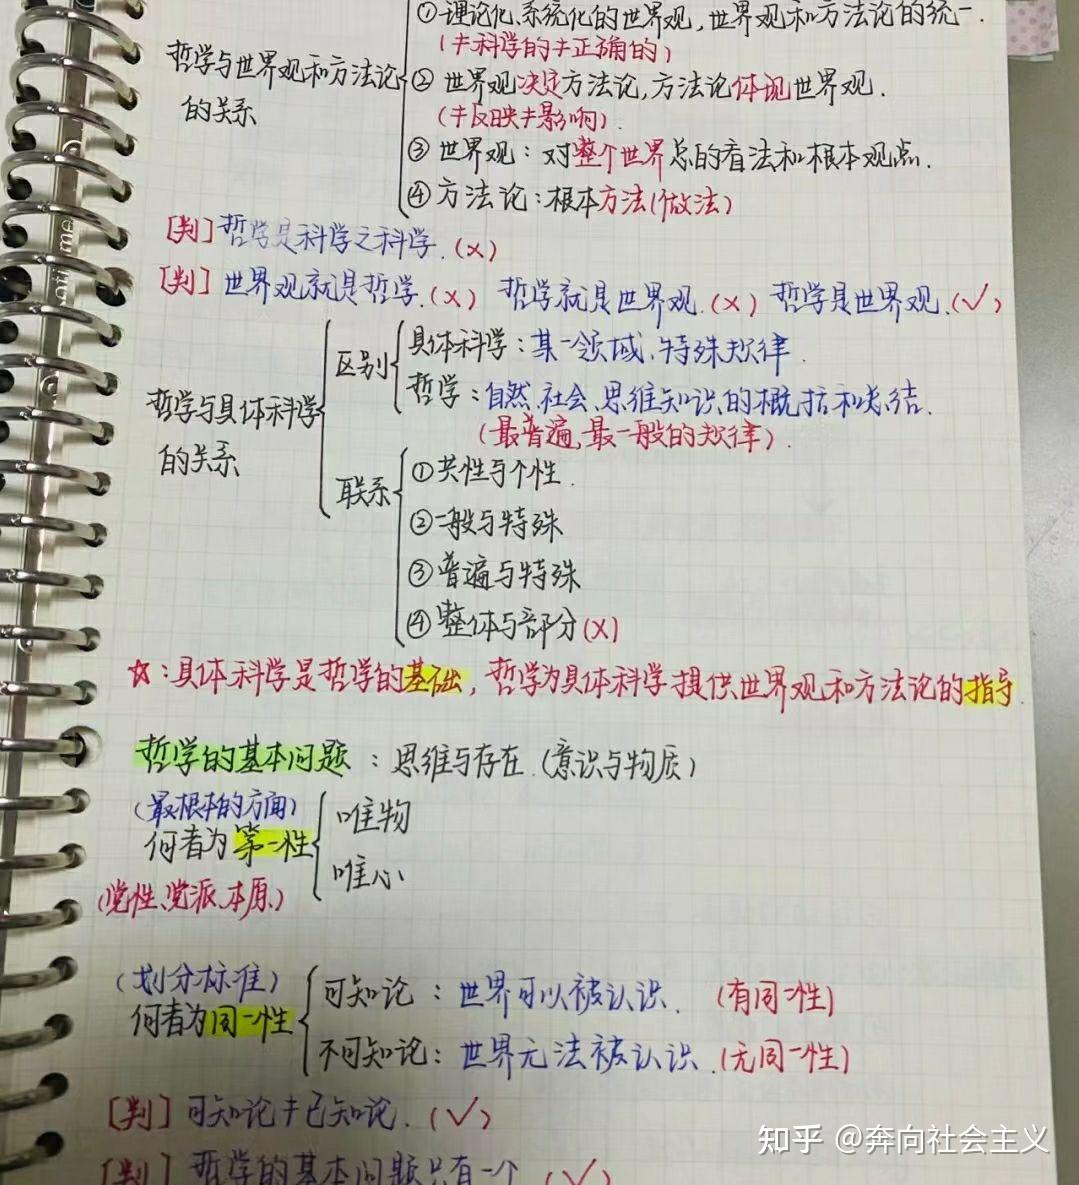 ① 理论化、系统化的世界观,世界观和方法论的统一.
(≠科学的≠正确的)
哲学与世界观和方法论
的关系
② 世界观决定方法论,方法论体现世界观.
(≠反映≠影响).
③ 世界观:对整个世界总的看法和根本观点.
④ 方法论:根本方法(做法)
[判]哲学是科学之科学.(×)
[判]世界观就是哲学.(×) 哲学就是世界观.(×) 哲学是世界观.(√)
哲学与具体科学
的关系
区别
具体科学:某一领域、特殊规律.
哲学:自然、社会、思维知识的概括和总结.
(最普遍,最一般的规律).
联系
①共性与个性.
②一般与特殊
③普遍与特殊
④整体与部分(×)
☆:具体科学是哲学的基础,哲学为具体科学提供世界观和方法论的指导.
哲学的基本问题:思维与存在.(意识与物质)
(最根本的方面)
何者为第一性
唯物
唯心
(党性、党派、本原)
(划分标准)
何者为同一性
可知论:世界可以被认识.(有同一性)
不可知论:世界无法被认识.(无同一性)
[判]可知论≠已知论.(√)
[判]哲学的基本问题只有一个.(√)
知乎 @奔向社会主义